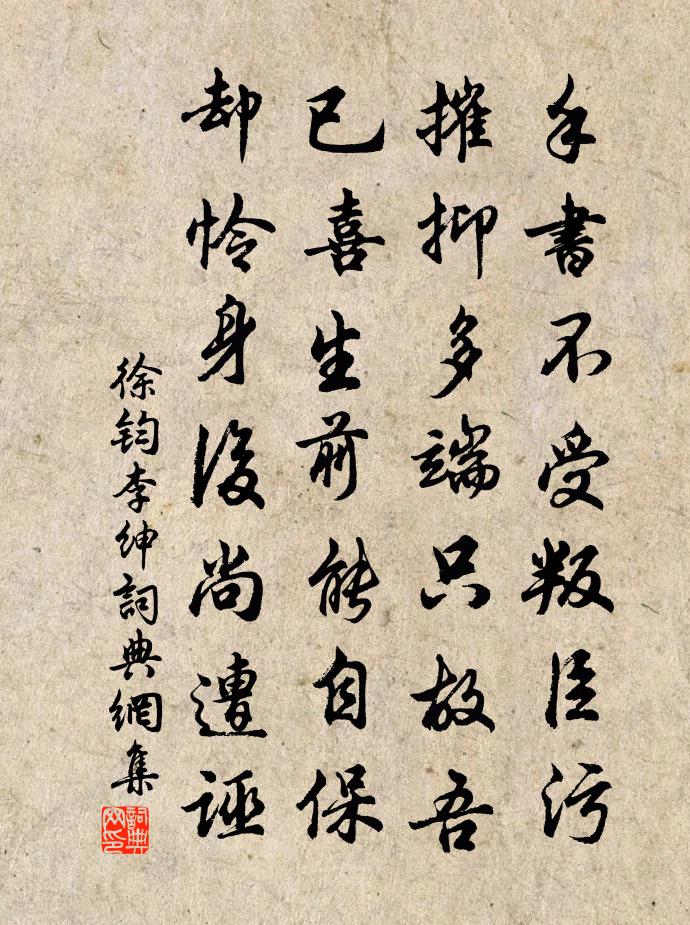 手書不受叛臣污
摧抑多端只故吾
已喜生前能自保
却怜身後尚遭誣
徐鈞李紳詞典網集
詞典网印